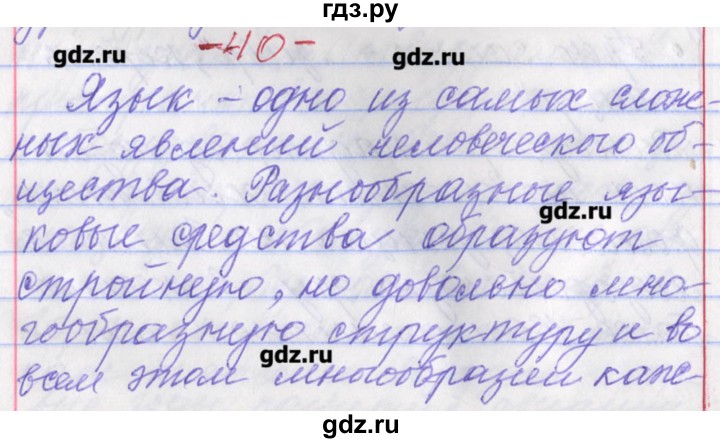 гдз.ру
-40-
gdz.ru gdz.ru
Язык - одно из самых слож-
ных явлений человеческого об-
щества. Разнообразные язы-
gdz.ru
ковые средства образуют
стройную, но довольно мно-
гообразную структуру и во
gdz.ru
всем этом многообразии каж-
gdz.ru